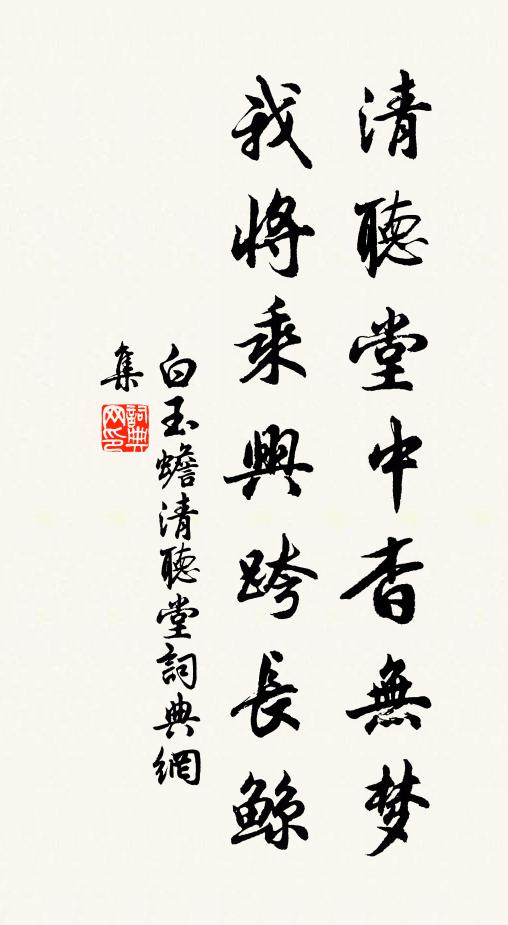 清聽堂中杳無梦
我將乘興跨長鲸
白玉蟾清聽堂詞典網
集
詞典网印